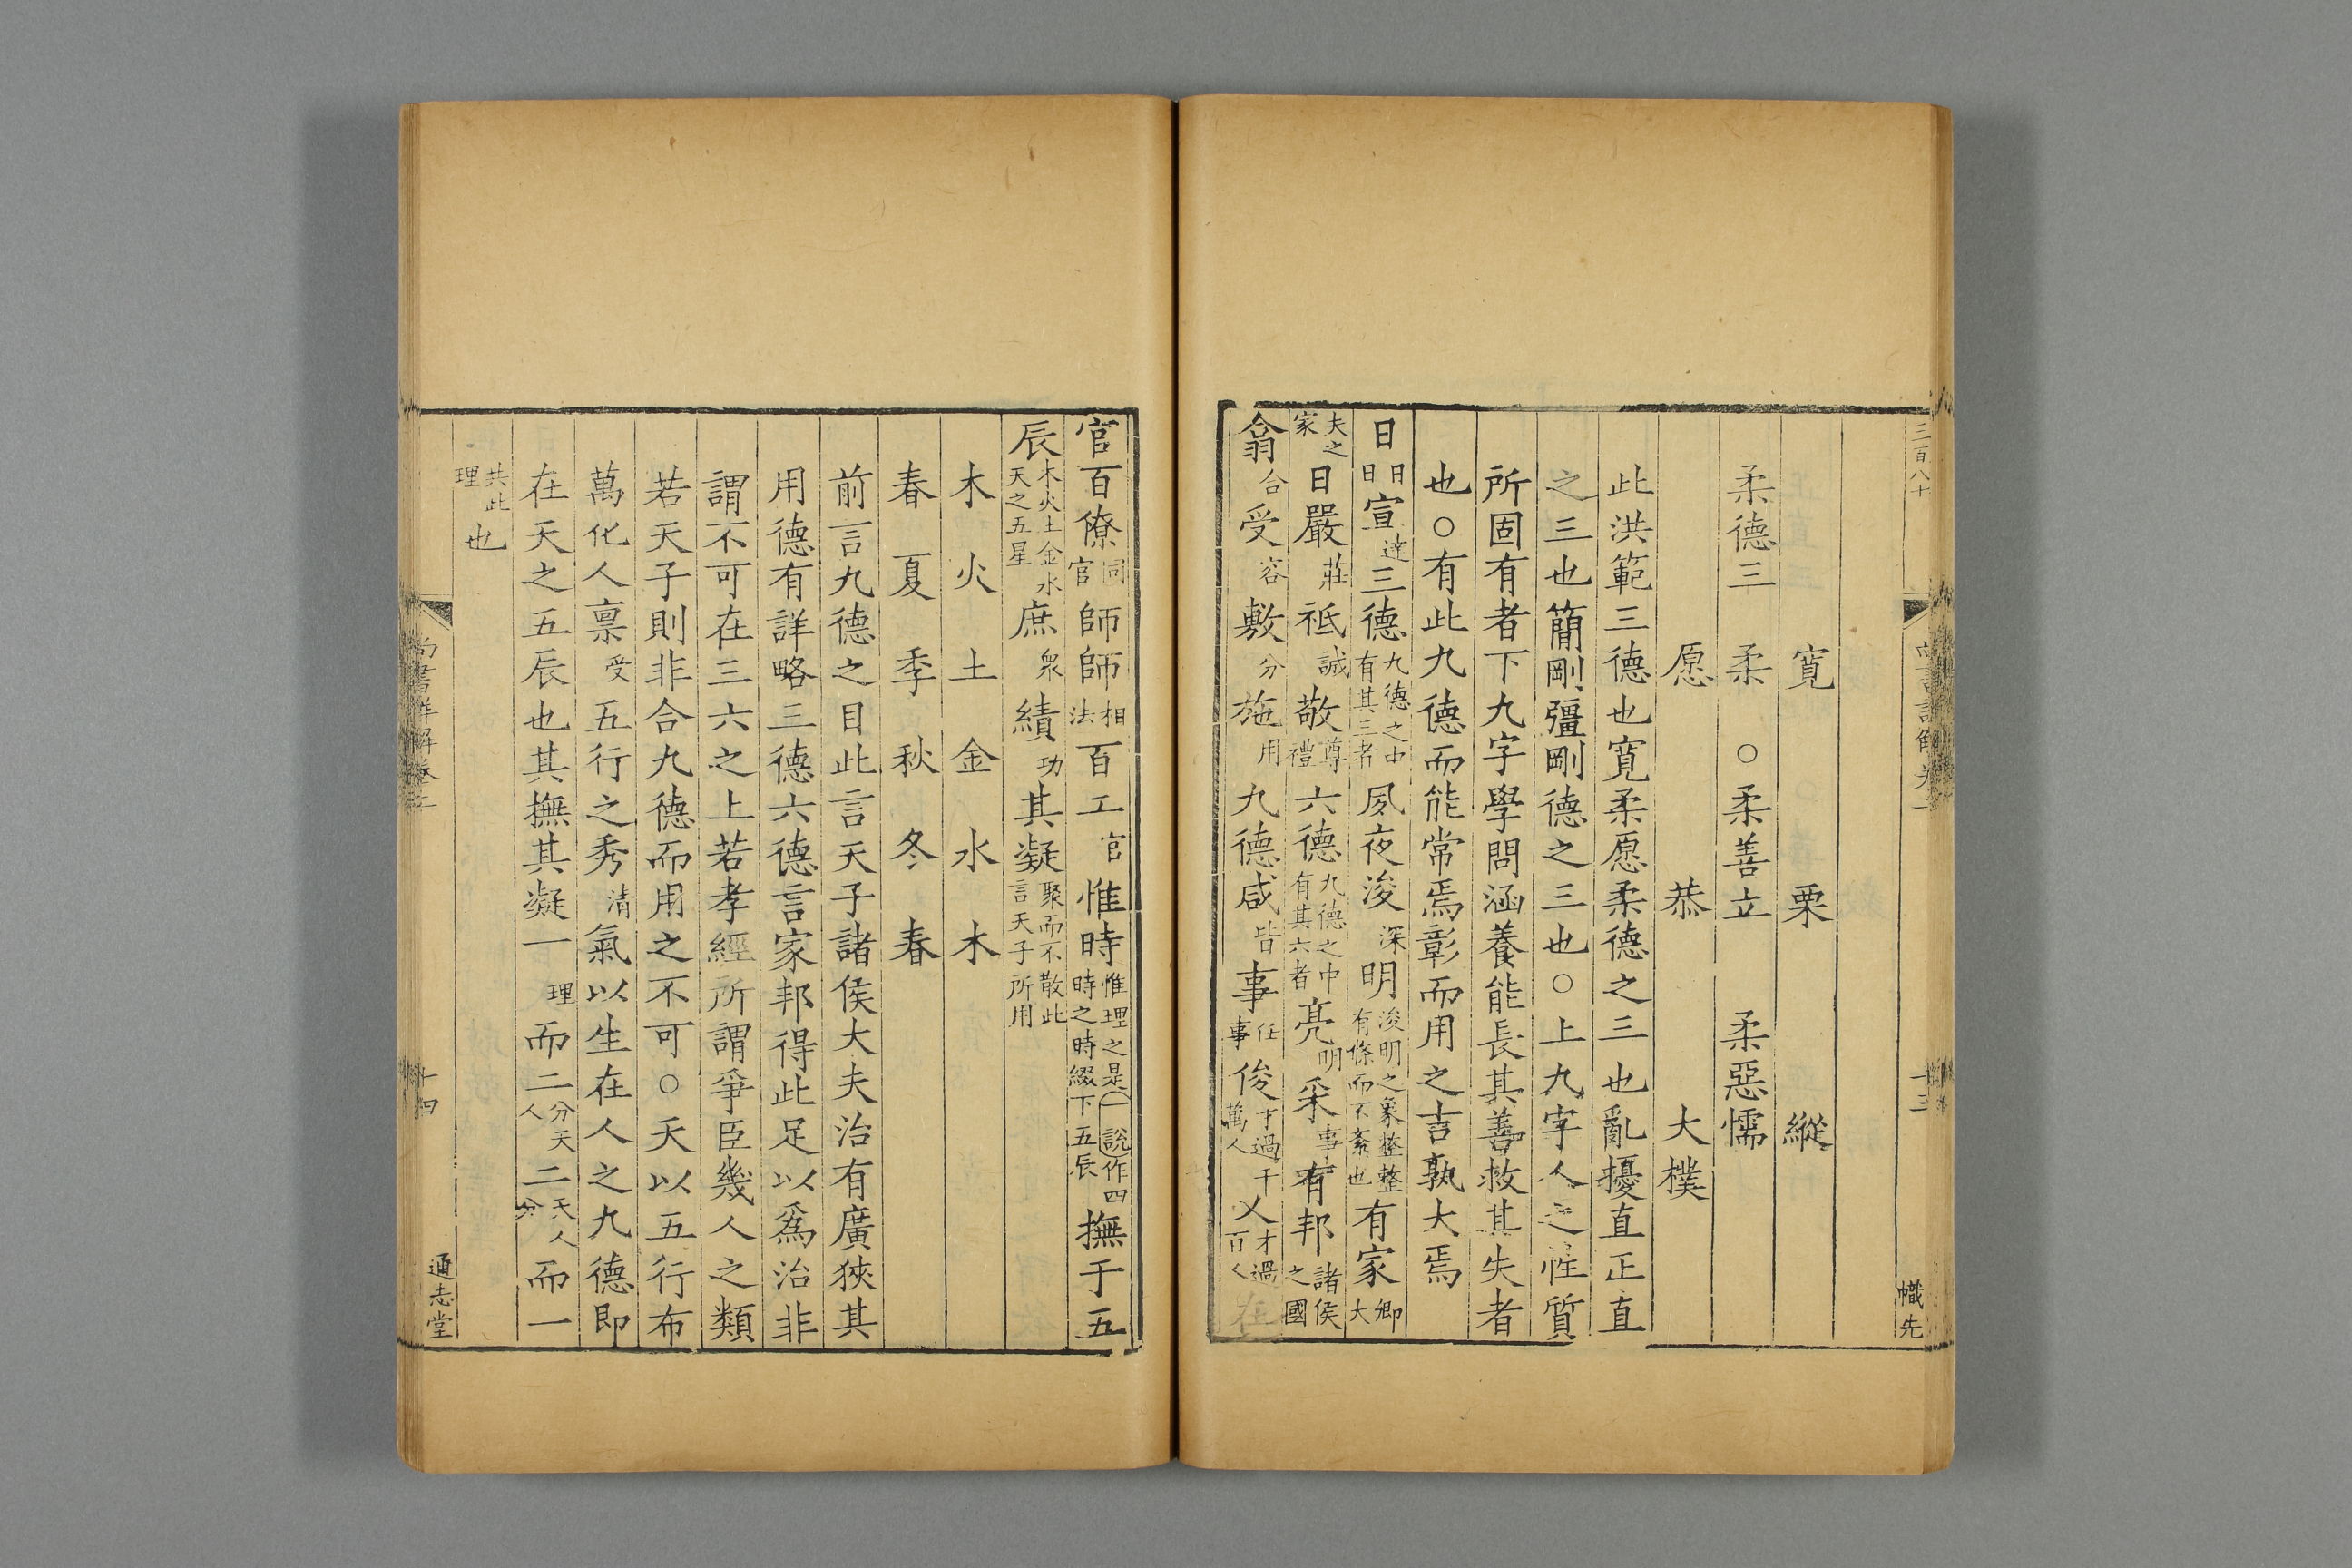 三百八十
尚書詳解卷二
十三
幟先
寬 栗 縱
柔德三 柔 ○柔善立 柔惡懦
愿 恭 大樸
此洪範三德也寬柔愿柔德之三也亂擾直正直
之三也簡剛彊剛德之三也○上九字人之性質
所固有者下九字學問涵養能長其善救其失者
也○有此九德而能常焉彰而用之吉孰大焉
日日日宣達三德九德之中有其三者夙夜浚深明浚明之象整整有條而不紊也有家卿大
夫之家日嚴莊祗誠敬尊禮六德九德之中有其六者亮明采事有邦諸侯之國
翕合受容敷分施用九德咸皆事任事俊才過千萬人乂才過百人在
官百僚同官師師相法百工官惟時惟理之是一說作四時之時綴下五辰撫于五
辰木火土金水天之五星庶衆績功其凝聚而不散此言天子所用
木 火 土 金 水 木
春 夏 季 秋 冬 春
前言九德之目此言天子諸侯大夫治有廣狹其
用德有詳略三德六德言家邦得此足以爲治非
謂不可在三六之上若孝經所謂爭臣幾人之類
若天子則非合九德而用之不可○天以五行布
萬化人禀受五行之秀清氣以生在人之九德即
在天之五辰也其撫其凝一理而二分天人二天人分而一
共此理也
尚書詳解卷二
十四
通志堂